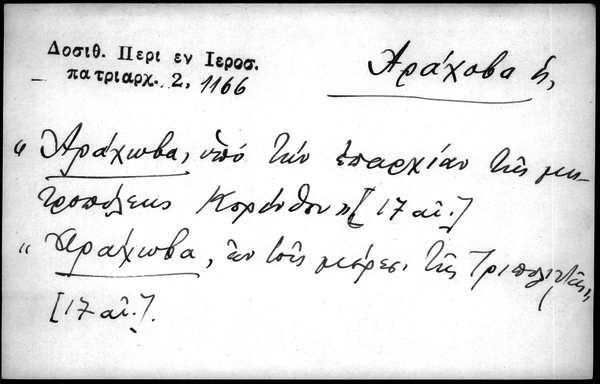 Δοσιθ. Περι εν Ιεροσ.
πατριαρχ. 2, 1166
Ἀράχοβα ἡ,
"Ἀράχωβα, ὑπό τήν ἐπαρχίαν τῆς μη-
τροπόλεως Κορίνθου" [17 αἰ.]
"Ἀράχωβα, ἐν τοῖς μέρεσι τῆς Τριπολιτζᾶς"
[17 αἰ.].